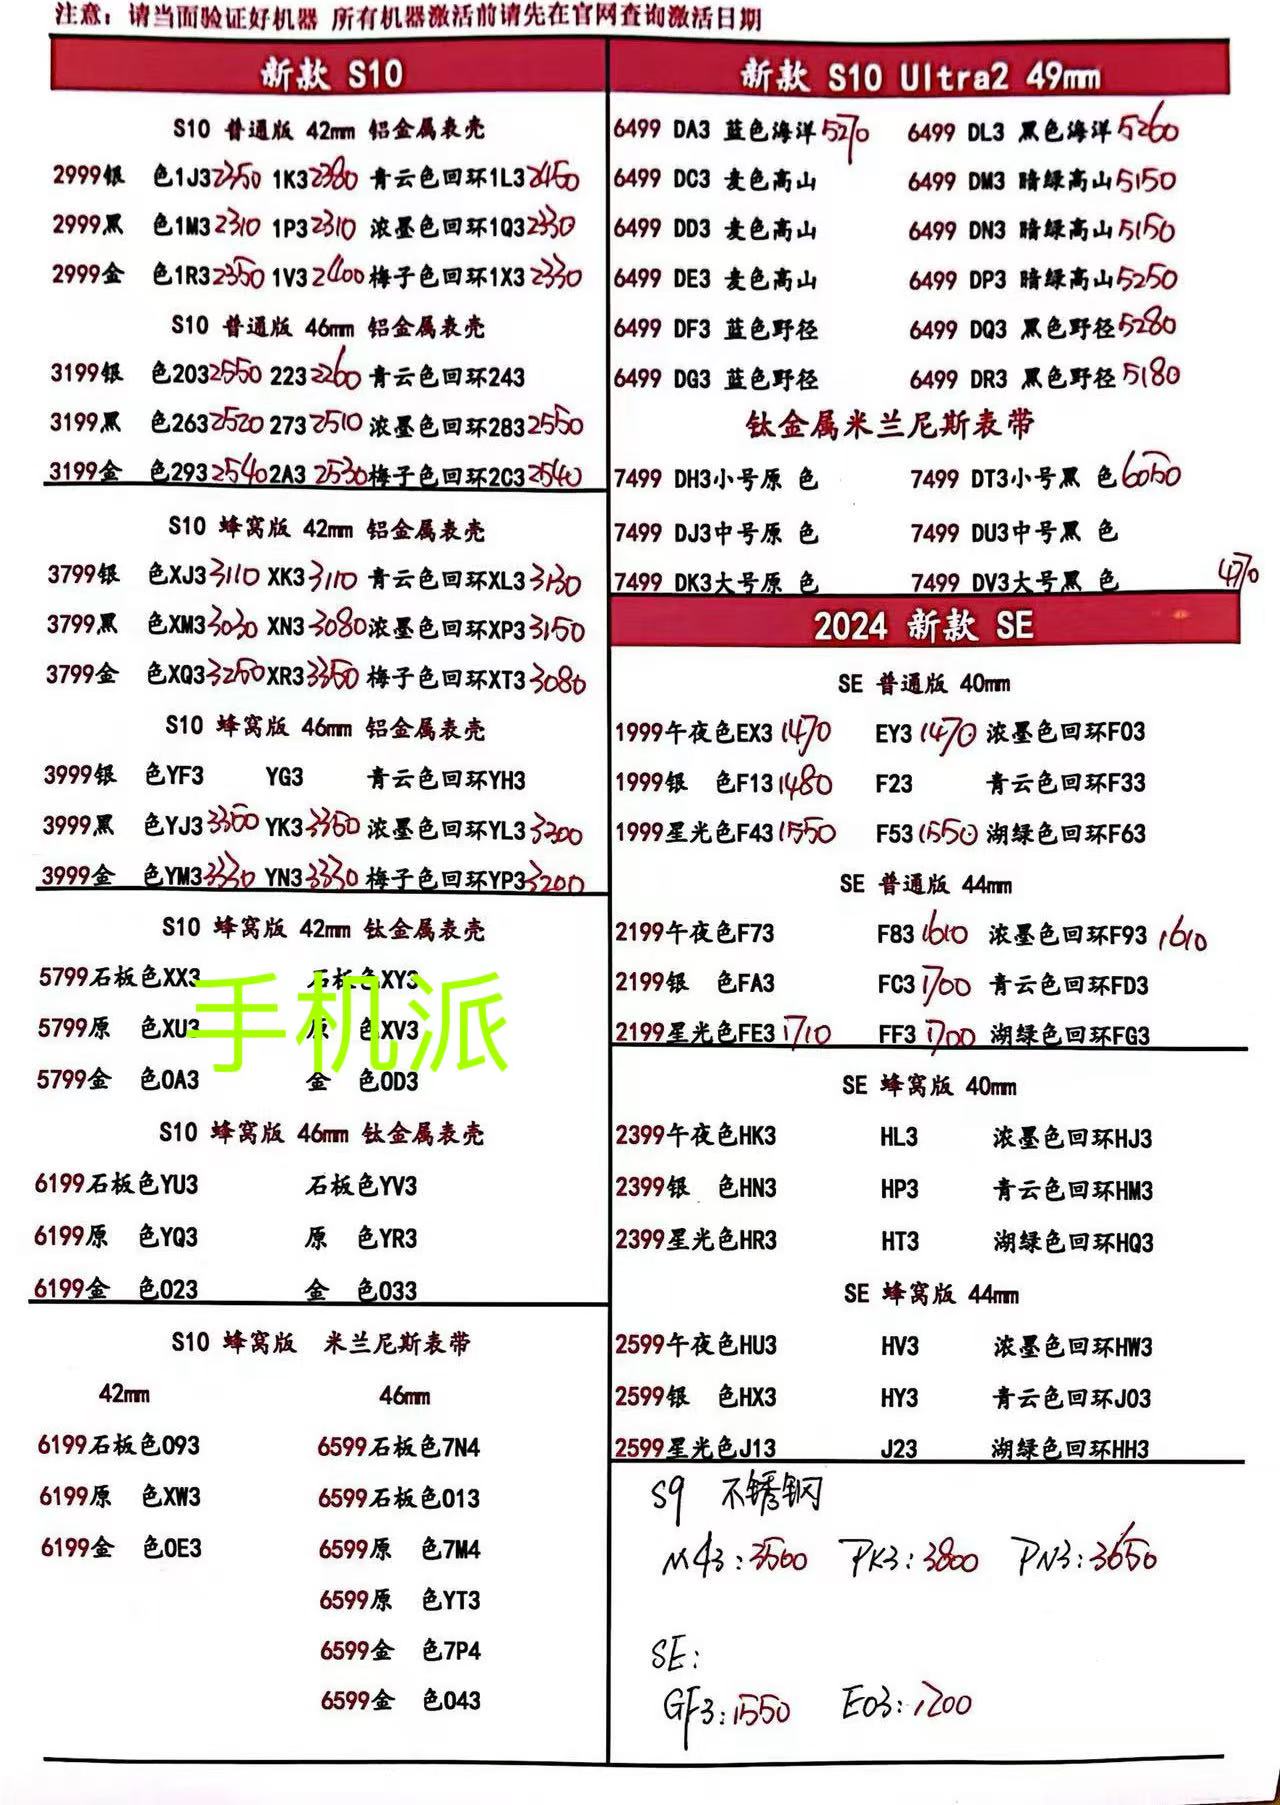 注意：请当面验证好机器 所有机器激活前请先在官网查询激活日期
新款 S10
S10 普通版 42mm 铝金属表壳
2999银 色1J3 2350 1K3 2380 青云色回环1L3 2450
2999黑 色1M3 2310 1P3 2310 浓墨色回环1Q3 2330
2999金 色1R3 2350 1V3 2400 梅子色回环1X3 2330
S10 普通版 46mm 铝金属表壳
3199银 色203 2550 223 2260 青云色回环243
3199黑 色263 2520 273 2510 浓墨色回环283 2550
3199金 色293 2540 2A3 2530 梅子色回环2C3 2540
S10 蜂窝版 42mm 铝金属表壳
3799银 色XJ3 3110 XK3 3110 青云色回环XL3 3130
3799黑 色XM3 3030 XN3 3080 浓墨色回环XP3 3150
3799金 色XQ3 3250 XR3 3350 梅子色回环XT3 3080
S10 蜂窝版 46mm 铝金属表壳
3999银 色YF3 YG3 青云色回环YH3
3999黑 色YJ3 3360 YK3 3360 浓墨色回环YL3 3300
3999金 色YM3 3330 YN3 3330 梅子色回环YP3 3200
S10 蜂窝版 42mm 钛金属表壳
5799石板色XX3 石板色XY3
5799原 色XU3 原 色XV3
手机派
5799金 色0A3 金 色0D3
S10 蜂窝版 46mm 钛金属表壳
6199石板色YU3 石板色YV3
6199原 色YQ3 原 色YR3
6199金 色023 金 色033
S10 蜂窝版 米兰尼斯表带
42mm 46mm
6199石板色093 6599石板色7N4
6199原 色XW3 6599石板色013
6199金 色0E3 6599原 色7M4
6599原 色YT3
6599金 色7P4
6599金 色043
新款 S10 Ultra2 49mm
6499 DA3 蓝色海洋 5270 6499 DL3 黑色海洋 5260
6499 DC3 麦色高山 6499 DM3 暗绿高山 5150
6499 DD3 麦色高山 6499 DN3 暗绿高山 5150
6499 DE3 麦色高山 6499 DP3 暗绿高山 5250
6499 DF3 蓝色野径 6499 DQ3 黑色野径 5280
6499 DG3 蓝色野径 6499 DR3 黑色野径 5180
钛金属米兰尼斯表带
7499 DH3小号原 色 7499 DT3小号黑 色 6050
7499 DJ3中号原 色 7499 DU3中号黑 色
7499 DK3大号原 色 7499 DV3大号黑 色 470
2024 新款 SE
SE 普通版 40mm
1999午夜色EX3 1470 EY3 1470 浓墨色回环F03
1999银 色F13 1480 F23 青云色回环F33
1999星光色F43 1550 F53 1550 湖绿色回环F63
SE 普通版 44mm
2199午夜色F73 F83 1610 浓墨色回环F93 1610
2199银 色FA3 FC3 1700 青云色回环FD3
2199星光色FE3 1710 FF3 1700 湖绿色回环FG3
SE 蜂窝版 40mm
2399午夜色HK3 HL3 浓墨色回环HJ3
2399银 色HN3 HP3 青云色回环HM3
2399星光色HR3 HT3 湖绿色回环HQ3
SE 蜂窝版 44mm
2599午夜色HU3 HV3 浓墨色回环HW3
2599银 色HX3 HY3 青云色回环J03
2599星光色J13 J23 湖绿色回环HH3
S9 不锈钢
M43：3500 PK3：3800 PN3：3650
SE：
GF3：1550 E03：1200